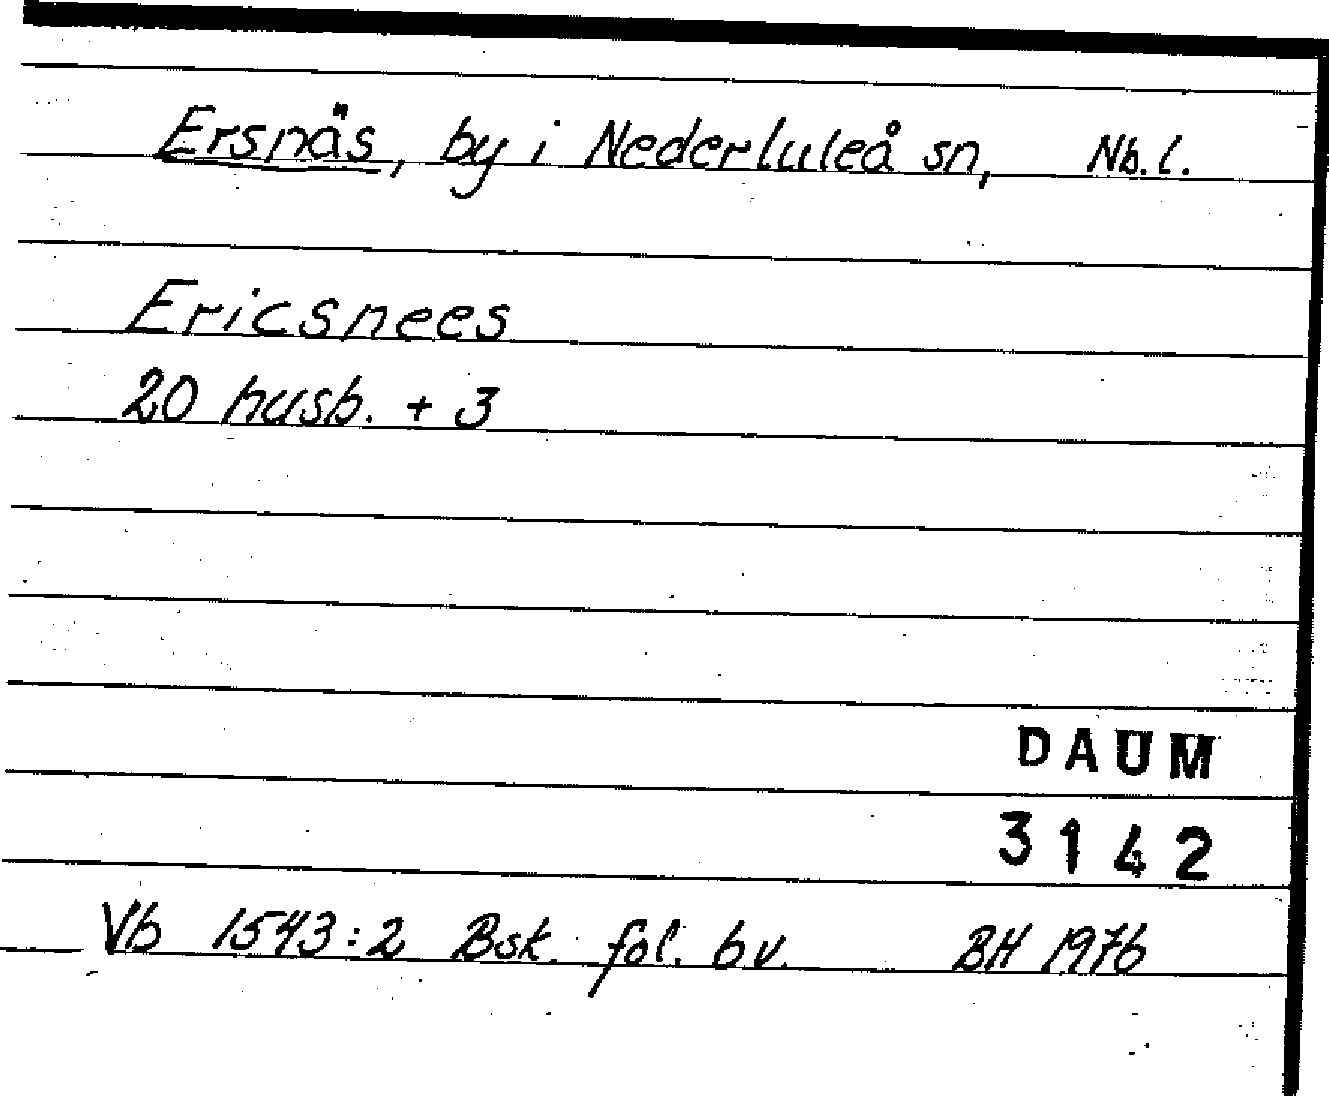 Ersnäs, by i Nederluleå sn, Nb.l.
Ericsnees
20 husb. + 3
DAUM
3142
Vb 1543:2 Bsk. fol. 6v. BH 1976